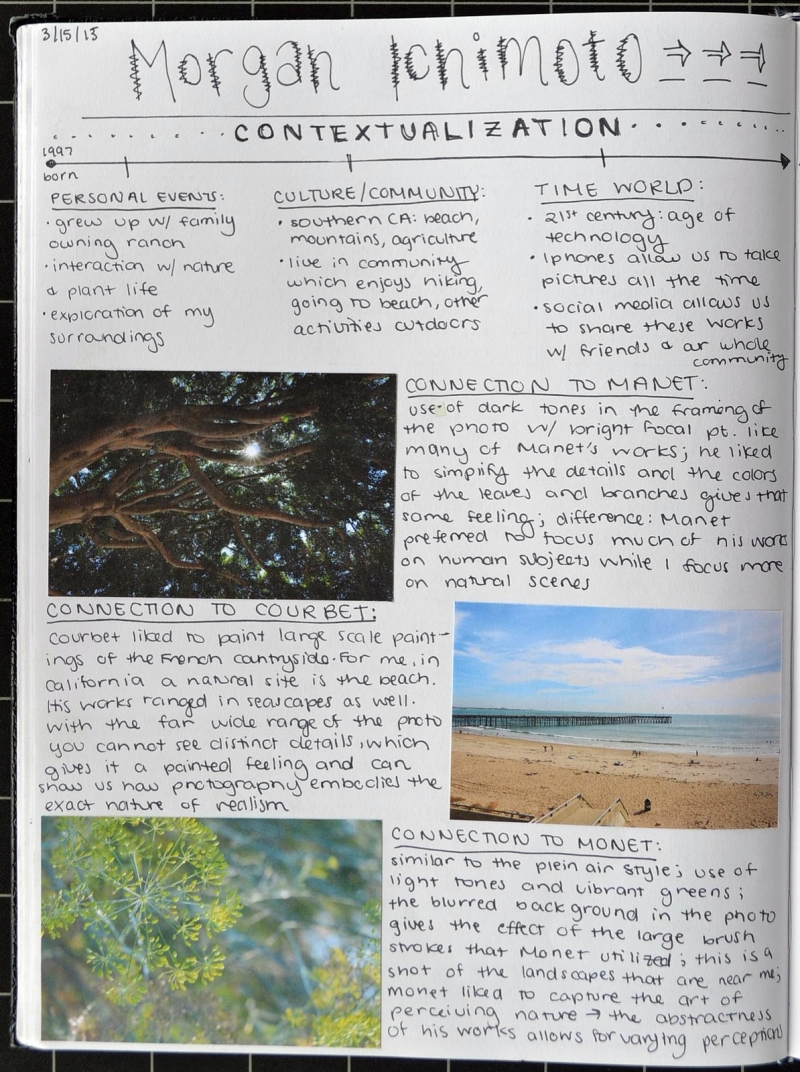 3/15/15
Morgan Ichimoto
CONTEXTUALIZATION
1997
born
PERSONAL EVENTS:
• grew up w/ family
owning ranch
• interaction w/ nature
& plant life
• exploration of my
surroundings
CULTURE/COMMUNITY:
• southern CA: beach,
mountains, agriculture
• live in community
which enjoys hiking,
going to beach, other
activities outdoors
TIME WORLD:
• 21st century: age of
technology
• Iphones allow us to take
pictures all the time
• social media allows us
to share these works
w/ friends & our whole
community
CONNECTION TO MANET:
use of dark tones in the framing of
the photo w/ bright focal pt. like
many of Manet's works; he liked
to simplify the details and the colors
of the leaves and branches gives that
same feeling; difference: Manet
preferred to focus much of his work
on human subjects while I focus more
on natural scenes
CONNECTION TO COURBET:
Courbet liked to paint large scale paint-
ings of the French countryside. For me, in
California a natural site is the beach.
His works ranged in seascapes as well.
With the far wide range of the photo
you cannot see distinct details, which
gives it a painted feeling and can
show us how photography embodies the
exact nature of realism
CONNECTION TO MONET:
similar to the plein air style; use of
light tones and vibrant greens;
the blurred background in the photo
gives the effect of the large brush
strokes that Monet utilized; this is a
shot of the landscapes that are near me;
monet liked to capture the art of
perceiving nature → the abstractness
of his works allows for varying perception